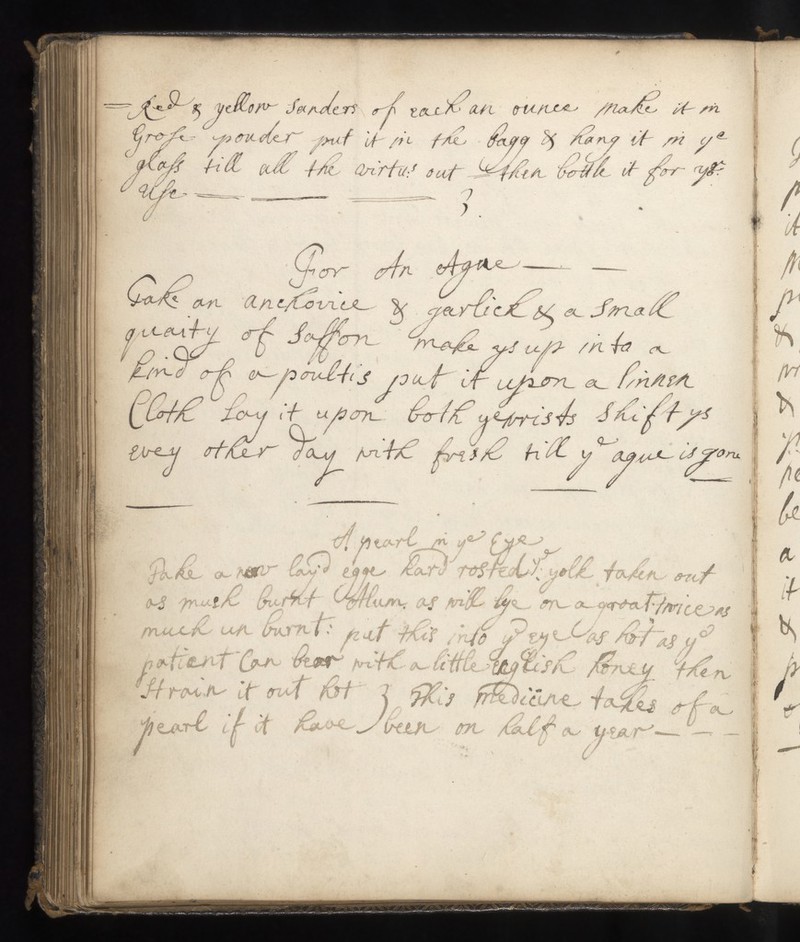 = Red & yellow Sanders of each an ounce make it in
Grose pouder put it in the bagg & hang it in ye
glass till all the virtus out then bottle it for yr
Use
For An Ague
Take an anchovice & garlick & a Small
quaity of Saffon make ys up into a
kind of a poultis put it upon a linnen
Cloth Lay it upon both ye wrists Shift ys
evey other day with fresh till ye ague is gone
A pearl in ye Eye
Take a new layd egge hard rosted ye yolk taken out
as much burnt Allum as will lye on a groat twice as
much un burnt: put this into ye eye as hot as ye
patient Can bear with a little English honey then
Strain it out hot } This Medicine takes of a
pearl if it have been on half a year